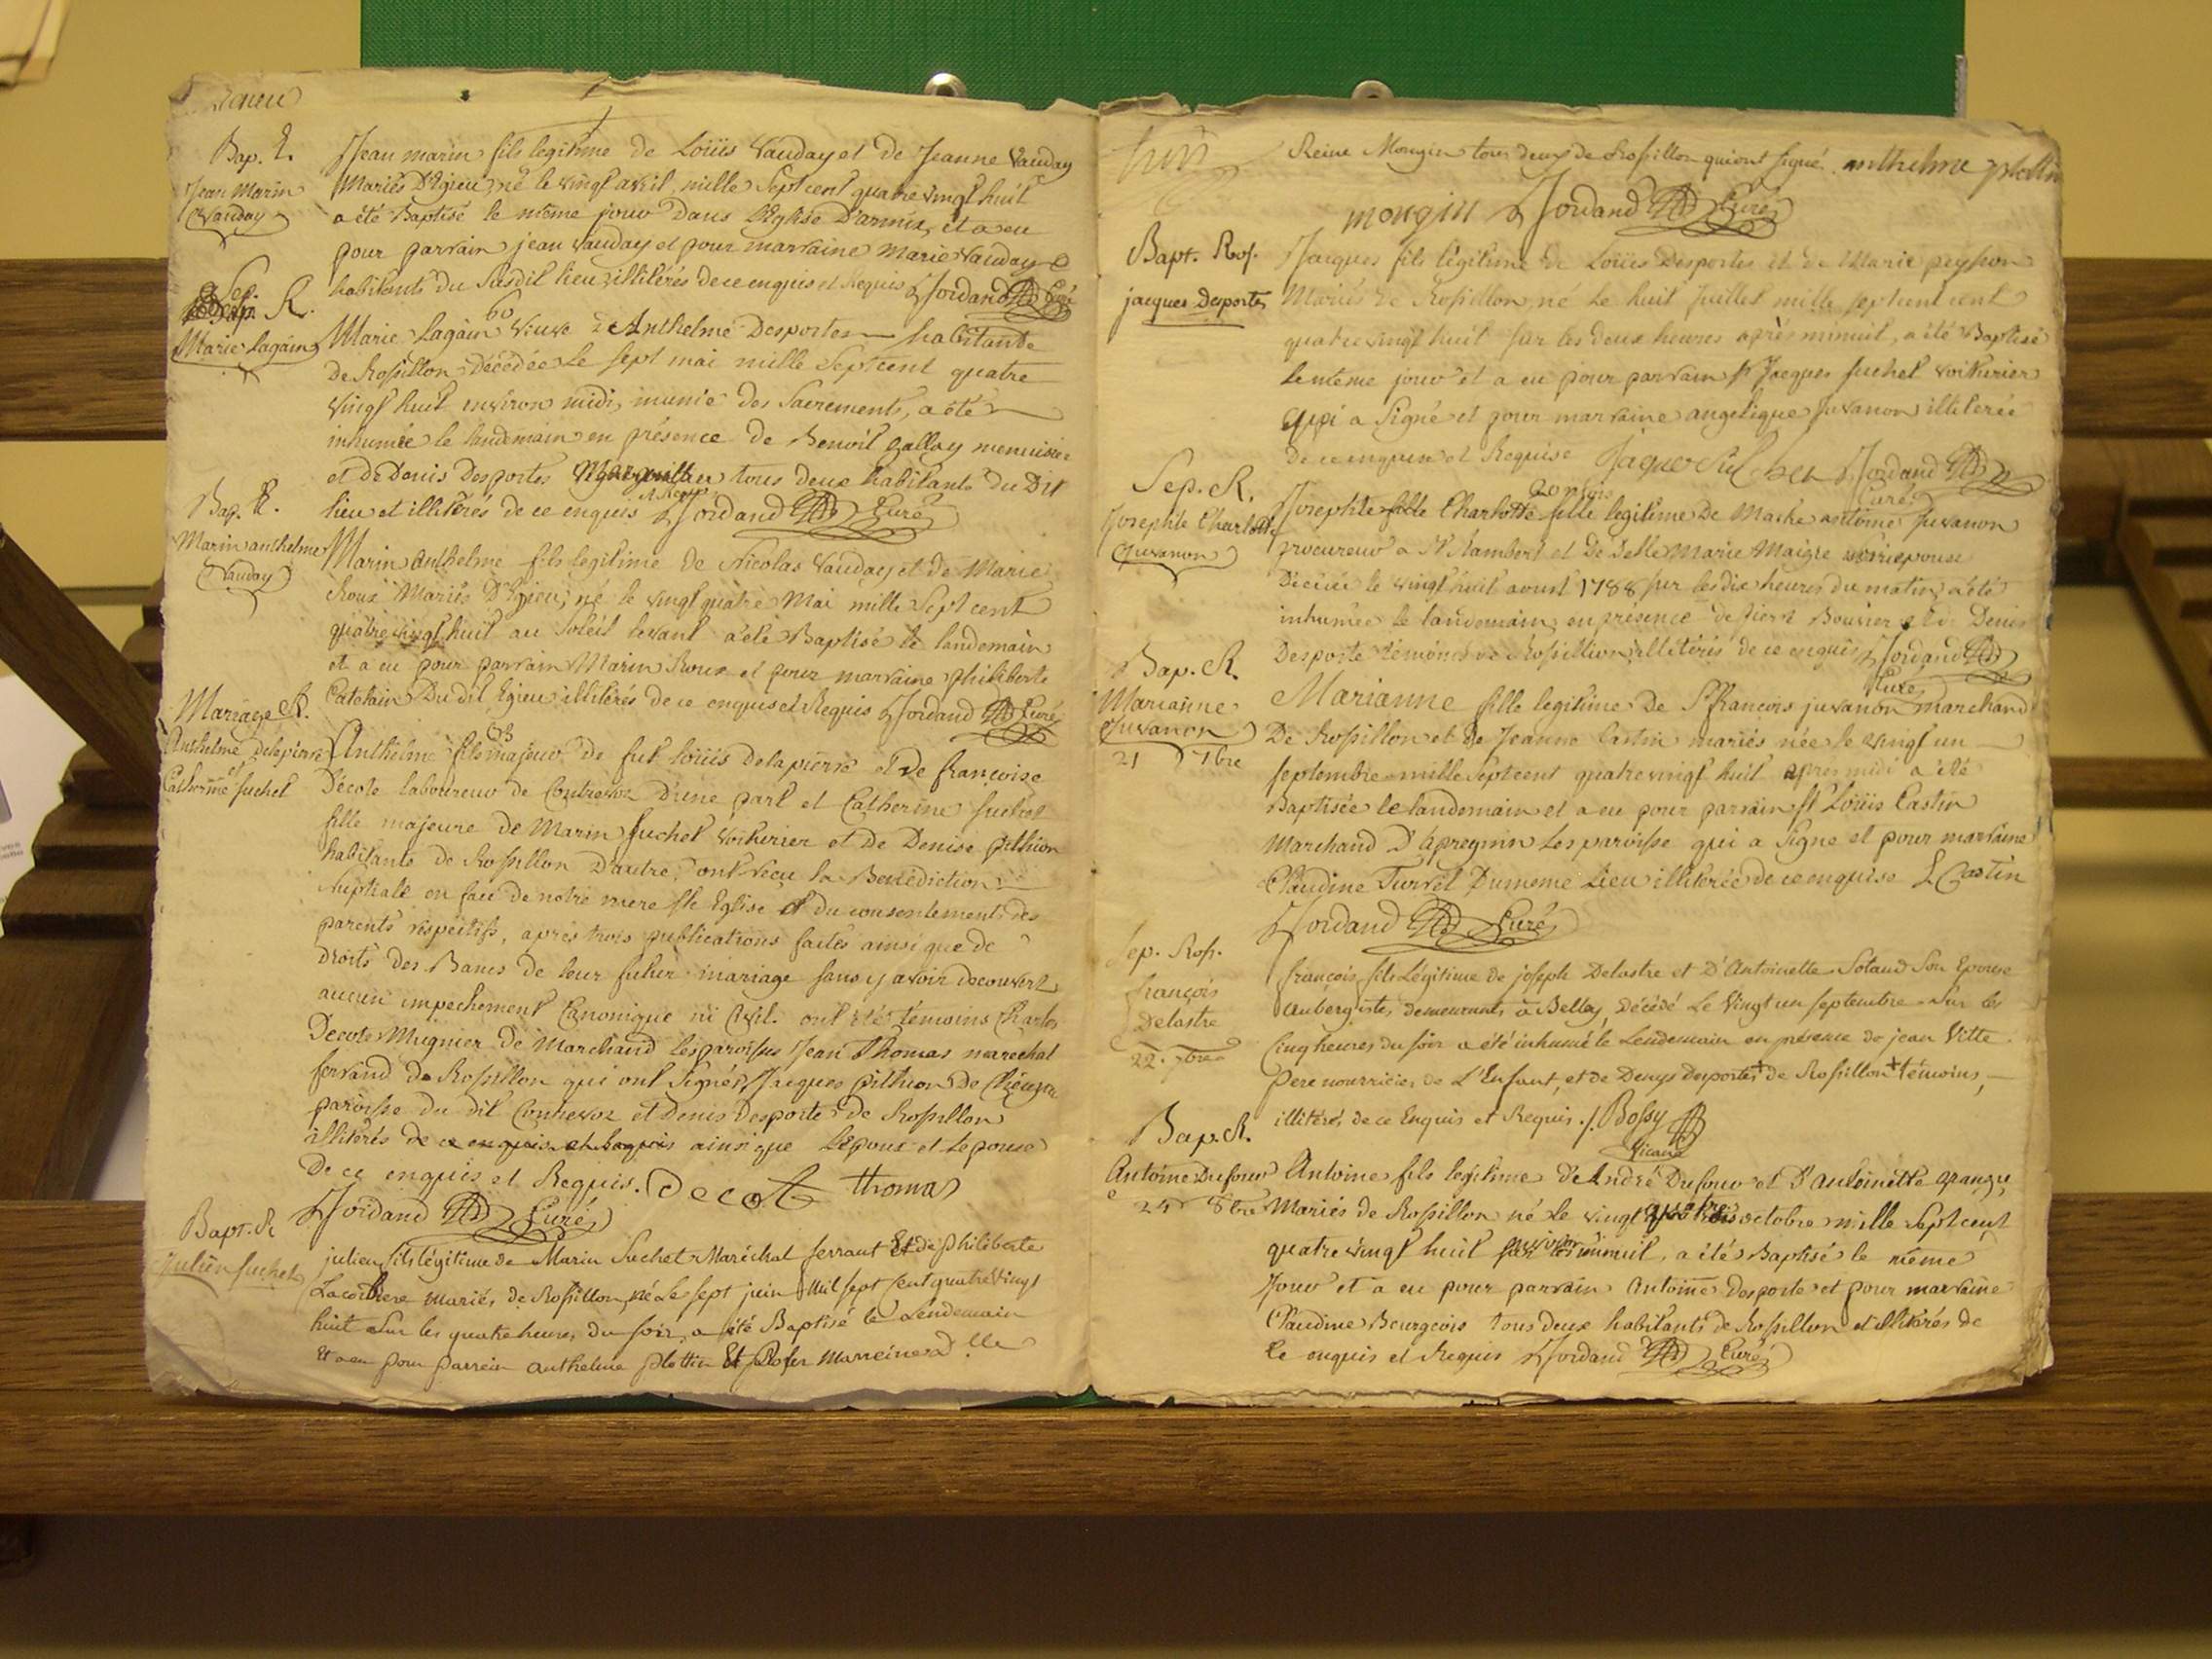 Bap. E.
Jean Marin
Vauday
Jean marin fils legitime de Loüis Vauday et de Jeanne Vauday
Mariés D'Egieu, né le vingt avril mille Sept cent quatre vingt huit
a été Baptisé le même jour Dans L'Eglise D'armix, et a eu
pour parrain jean Vauday et pour marraine Marie Vauday
habitants du Susdit lieu, illitérés de ce enquis et Requis Jordand Curé
Sep. R.
Marie Lagain
60
Marie Lagain Veuve D'Anthelme Desportes habitante
De Rossillon Décédée Le sept mai mille Sept cent quatre
vingt huit environ midi, munie des Sacrements, a été
inhumée le landemain en présence de Benoit gallay menuisier
et de Denis Desportes Marguillier tous deux habitants du Dit
lieu et illitérés de ce enquis Jordand Curé
Bap. E.
Marin anthelme
Vauday
Marin anthelme fils legitime de Nicolas Vauday et de Marie
Roux Mariés D'Egieu, né le vingt quatre Mai mille Sept cent
quatre vingt huit au Soleil levant a été Baptisé le landemain
et a eu pour parrain Marin Roux et pour marraine philiberte
Catelain Du dit Egieu illitérés de ce enquis et Requis Jordand Curé
Mariage R.
Anthelme delapierre
et
Catherine Suchet
Anthelme fils majeur de fut Loüis delapierre et de françoise
Décote laboureur de Contrevoz D'une part et Catherine Suchet
fille majeure de Marin Suchet Voiturier et de Denise pithion
habitants de Rossillon D'autre, ont reçu la Benediction
Nuptiale en face de notre mere Ste Eglise et du consentement des
parents respectifs, après trois publications faites ainsi que de
Droits des Bancs de leur futur mariage sans y avoir decouvert
aucun impechement Canonique ni Civil. ont été témoins Charles
Decote Mugnier de Marchand les paroisses Jean Thomas marechal
ferrand de Rossillon qui ont Signés, Jacques pithion de
paroisse du dit Contrevoz et Denis Desportes de Rossillon
illitérés de ce enquis et Requis ainsi que L'Epoux et Lepouse
De ce enquis et Requis. Decot Thomas
Jordand Curé
Bapt. R
Julien Suchet
julien fils légitime de Marin Suchet Maréchal ferrant Et de philiberte
mariés de Rossillon, né Le sept juin Mil sept cent quatre vingt
huit Sur les quatre heures du soir, a été Baptisé le Lendemain
Et a eu pour parrein anthelme plottin Et pour Marreine d.lle
Reine Mongin tous deux de Rossillon qui ont signé. anthelme plottin
mongin Jordand Curé
Bapt. Ros.
jacques Desportes
Jacques fils légitime de Loüis Desportes et de Marie peysson
Mariés de Rossillon, né le huit juillet mille sept cent cent
quatre vingt huit sur les deux heures après minuit, a été Baptisé
le même jour et a eu pour parrain Sr Jacques Suchet Voiturier
qui a Signé et pour marraine angelique Juvanon illiterée
De ce enquise et Requise Jaque Suchet Jordand
Curé
Sep. R.
Josephte Charlotte
Juvanon
20 mois
Josephte fille Charlotte fille legitime De Maitre antoine Juvanon
procureur a St Rambert et De Delle Marie Maigre son epouse
Décédée le vingt huit aoust 1788 sur les dix heures du matin, a été
inhumée le landemain, en présence de pierre Bouvier et de Denis
Desporte témoins de Rossillion, illitérés de ce enquis Jordand
Curé
Bap. R.
Marianne
Juvanon
21 7bre
Marianne fille legitime de Sr francois juvanon marchand
De Rossillon et de Jeanne Castin mariés née le vingt un
septembre mille Sept cent quatre vingt huit après midi a été
Baptisée le landemain et a eu pour parrain Sr Loüis Castin
Marchand D'apregnin Les paroisse qui a Signe et pour marraine
Claudine Turrel Du meme Lieu illiterée de ce enquise L Castin
Jordand Curé
Sep. Ross.
françois
Delastre
22. 7bre
françois fils Légitime de joseph Delastre et D'Antoinette Sotaud Son Epouse
Aubergistes demeurants à Belley, Décédé Le Vingt un septembre Sur les
Cinq heures du soir a été inhumé le Lendemain en présence de jean Vitte
Pere nourricier de L'Enfant, et de Denys Desportes de Rossillon témoins,
illitérés de ce Enquis et Requis. Bossy
Vicaire
Bap. R.
Antoine Dufour
24 8bre
Antoine fils legitime d'André Dufour et D'antoinette grange
Mariés de Rossillon né le vingt octobre mille Sept cent
quatre vingt huit environ minuit, a étés Baptisé le même
Jour et a eu pour parrain Antoine Desporte et pour marraine
Claudine Bourgeois tous Deux habitants de Rossillon et illitérés de
Ce enquis et Requis Jordand Curé